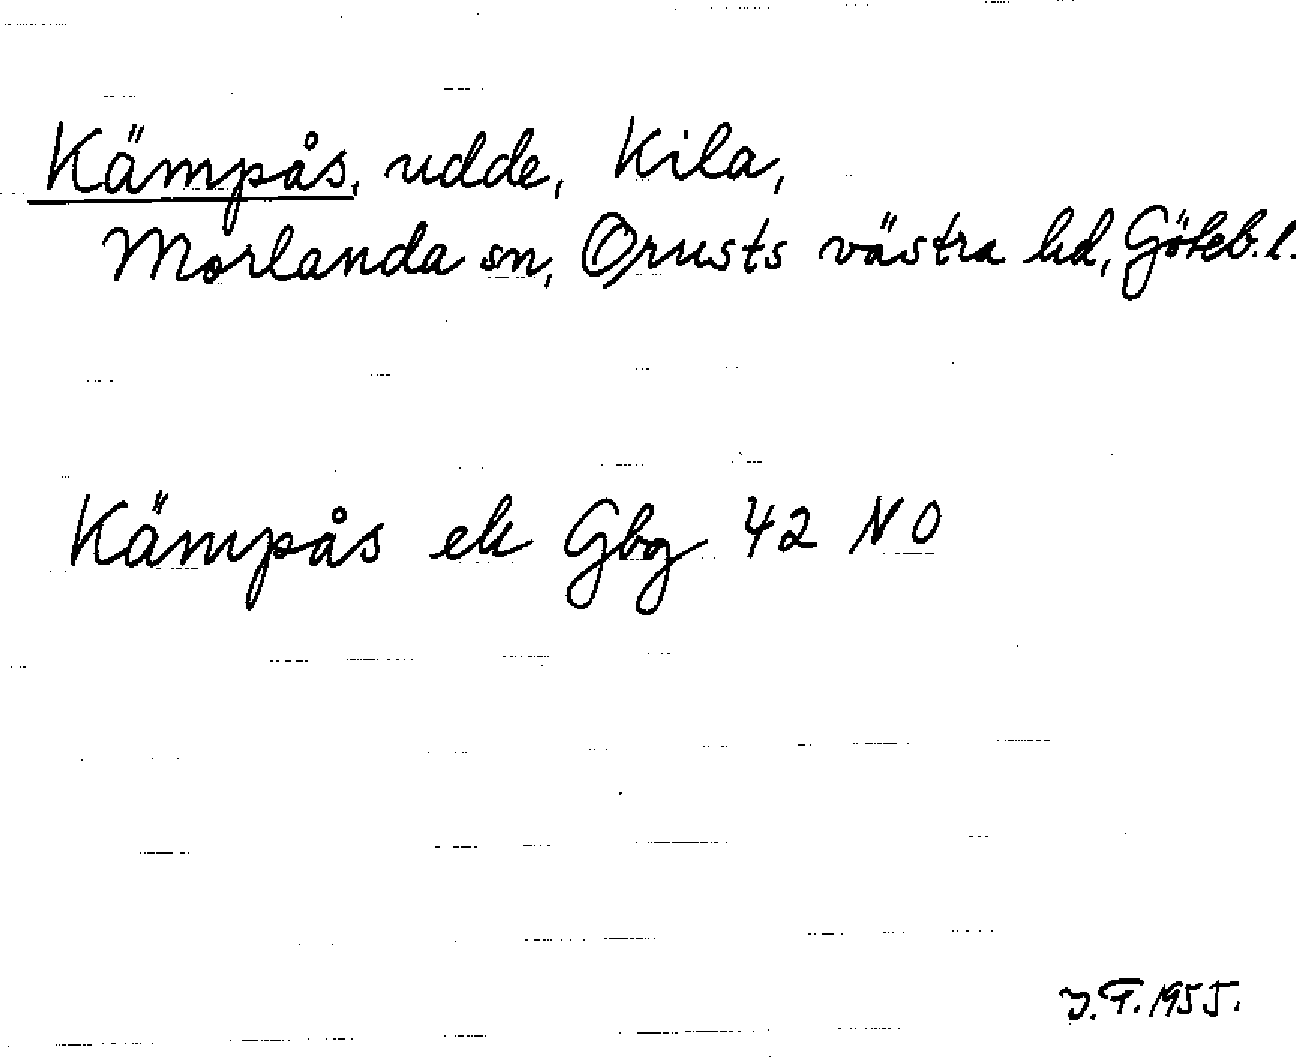 Kämpås, udde, Kila,
Morlanda sn, Orusts västra hd, Göteb. l.
Kämpås ek Gbg 42 NO
J.F. 1955.